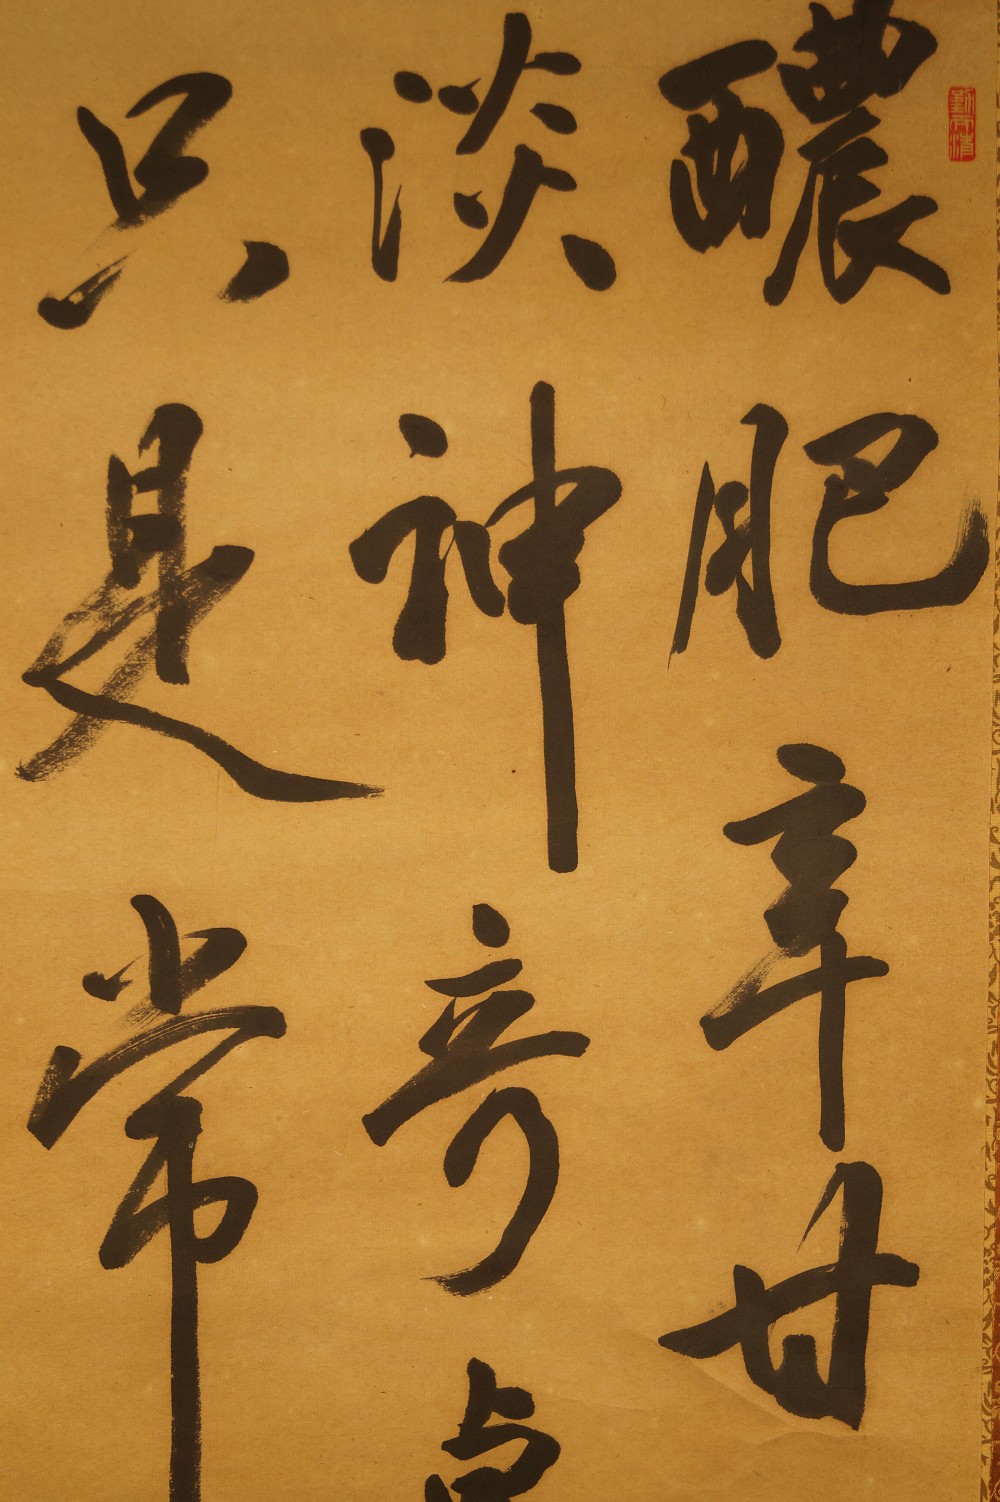 醲肥辛甘
淡神奇卓
只是常